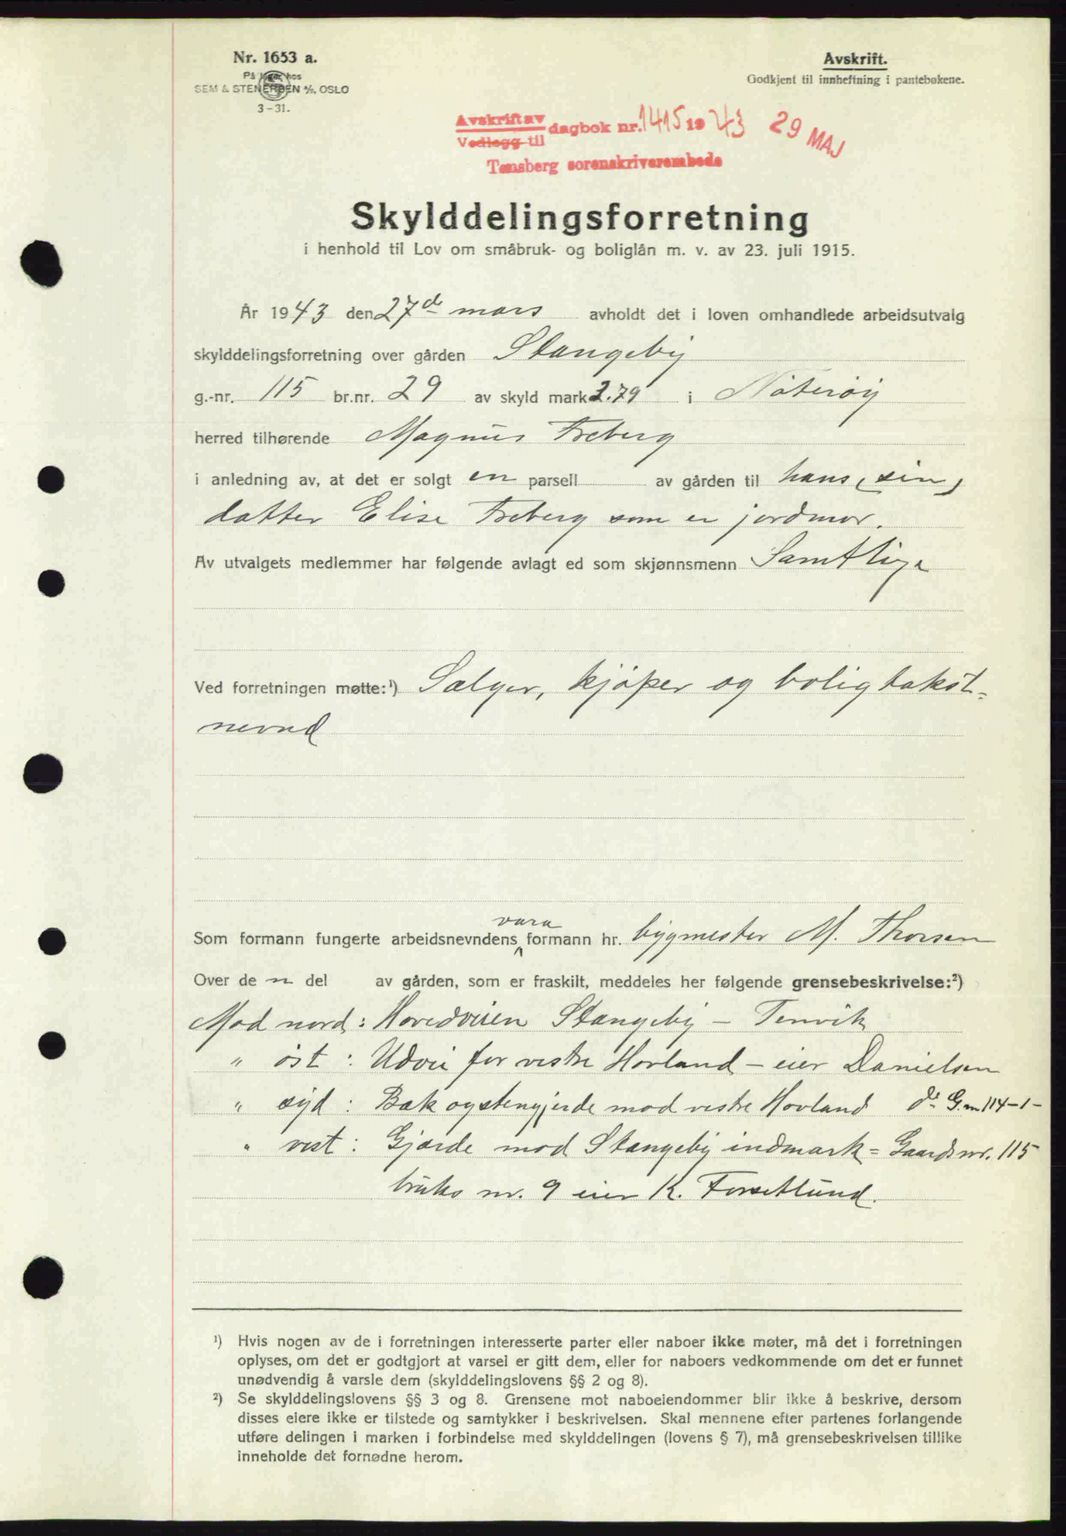 Nr. 1653 a.
På lager hos
SEM & STENERSEN A/S, OSLO
3-31.
Avskrift.
Godkjent til innheftning i pantebøkene.
Avskrift av
Vedlegg til
dagbok nr. 1415 1943 29 MAJ
Tønsberg sorenskriverembede
Skylddelingsforretning
i henhold til Lov om småbruk- og boliglån m. v. av 23. juli 1915.
År 1943 den 27de mars avholdt det i loven omhandlede arbeidsutvalg
skylddelingsforretning over gården Stangeby
g.-nr. 115 br.nr. 29 av skyld mark 2.79 i Nøterøy
herred tilhørende Magnus Freberg
i anledning av, at det er solgt en parsell av gården til hans (sin)
datter Elise Freberg som er jordmor.
Av utvalgets medlemmer har følgende avlagt ed som skjønnsmenn Samtlige
Ved forretningen møtte:¹) Sælger, kjøper og boligtakst-
nevnd
Som formann fungerte arbeidsnevndens vara formann hr. bygmester M. Thorsen
Over de n del av gården, som er fraskilt, meddeles her følgende grensebeskrivelse:²)
Mod nord: Hovedveien Stangeby - Tenvik
" øst: Udvei for vestre Hovland - eier Danielsen
" syd: Bæk og stengjerde mod vestre Hovland do G.nr 114-1-
" vest: Gjærde mod Stangeby indmark = Gaardsnr. 115
bruks nr. 9 eier K. Forsetlund.
¹) Hvis nogen av de i forretningen interesserte parter eller naboer ikke møter, må det i forretningen
oplyses, om det er godtgjort at varsel er gitt dem, eller for naboers vedkommende om det er funnet
unødvendig å varsle dem (skylddelingslovens §§ 2 og 8).
²) Se skylddelingslovens §§ 3 og 8. Grensene mot naboeiendommer blir ikke å beskrive, dersom
disses eiere ikke er tilstede og samtykker i beskrivelsen. Skal mennene efter partenes forlangende
utføre delingen i marken i forbindelse med skylddelingen (lovens § 7), må grensebeskrivelsen tillike
inneholde det fornødne herom.